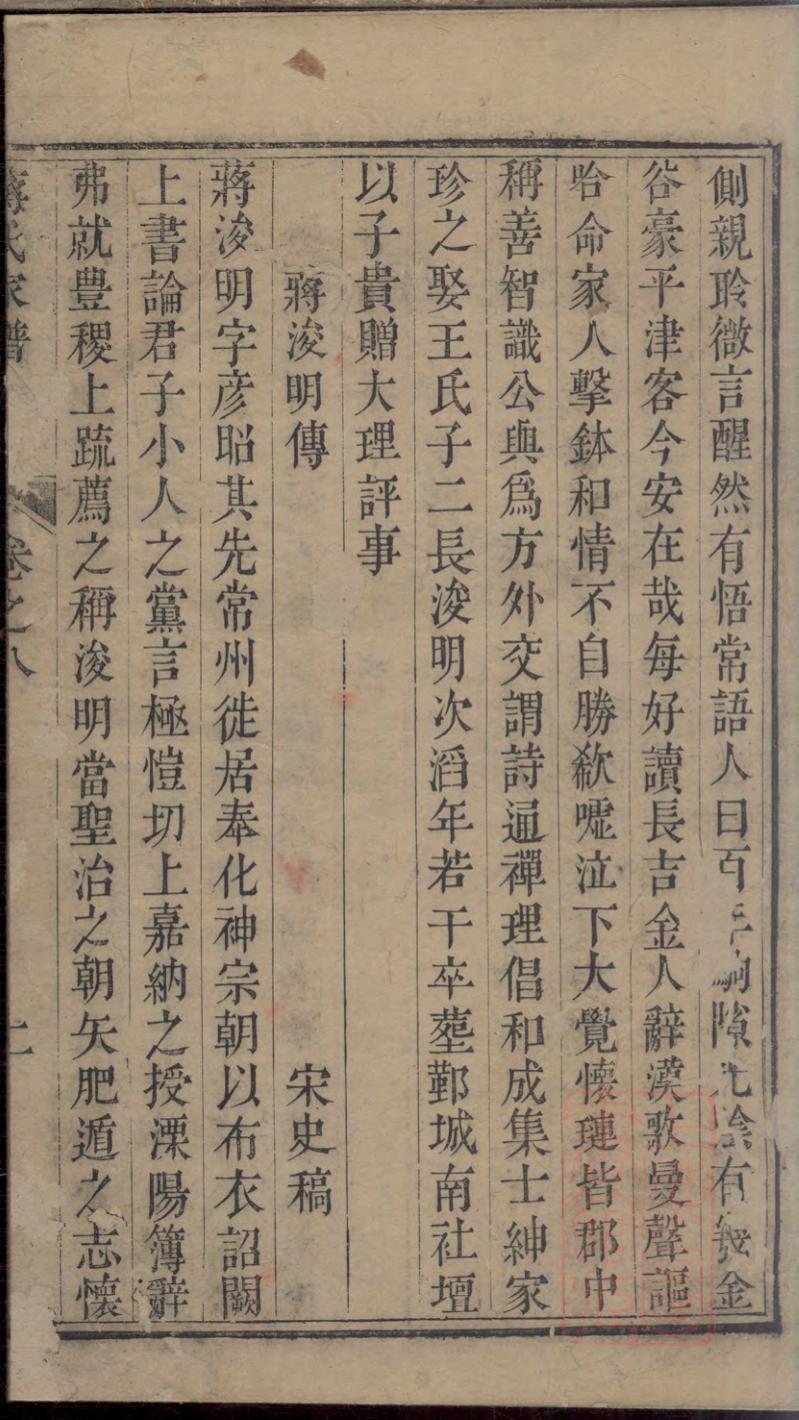 側親聆微言醒然有悟常語人曰百年駒隙光陰有幾金
谷豪平津客今安在哉每好讀長吉金人辭漢歌曼聲謳
哈命家人擊鉢和情不自勝欷噓泣下大覺懷璉皆郡中
稱善智識公與爲方外交謂詩通禪理倡和成集士紳家
珍之娶王氏子二長浚明次滔年若干卒塟鄞城南社壇
以子貴贈大理評事
蔣浚明傳 宋史稿
蔣浚明字彦昭其先常州徙居奉化神宗朝以布衣詔闕
上書論君子小人之黨言極愷切上嘉納之授溧陽簿辭
弗就豊稷上疏薦之稱浚明當聖治之朝矢肥遁之志懷
蔣氏家譜 卷之八 二